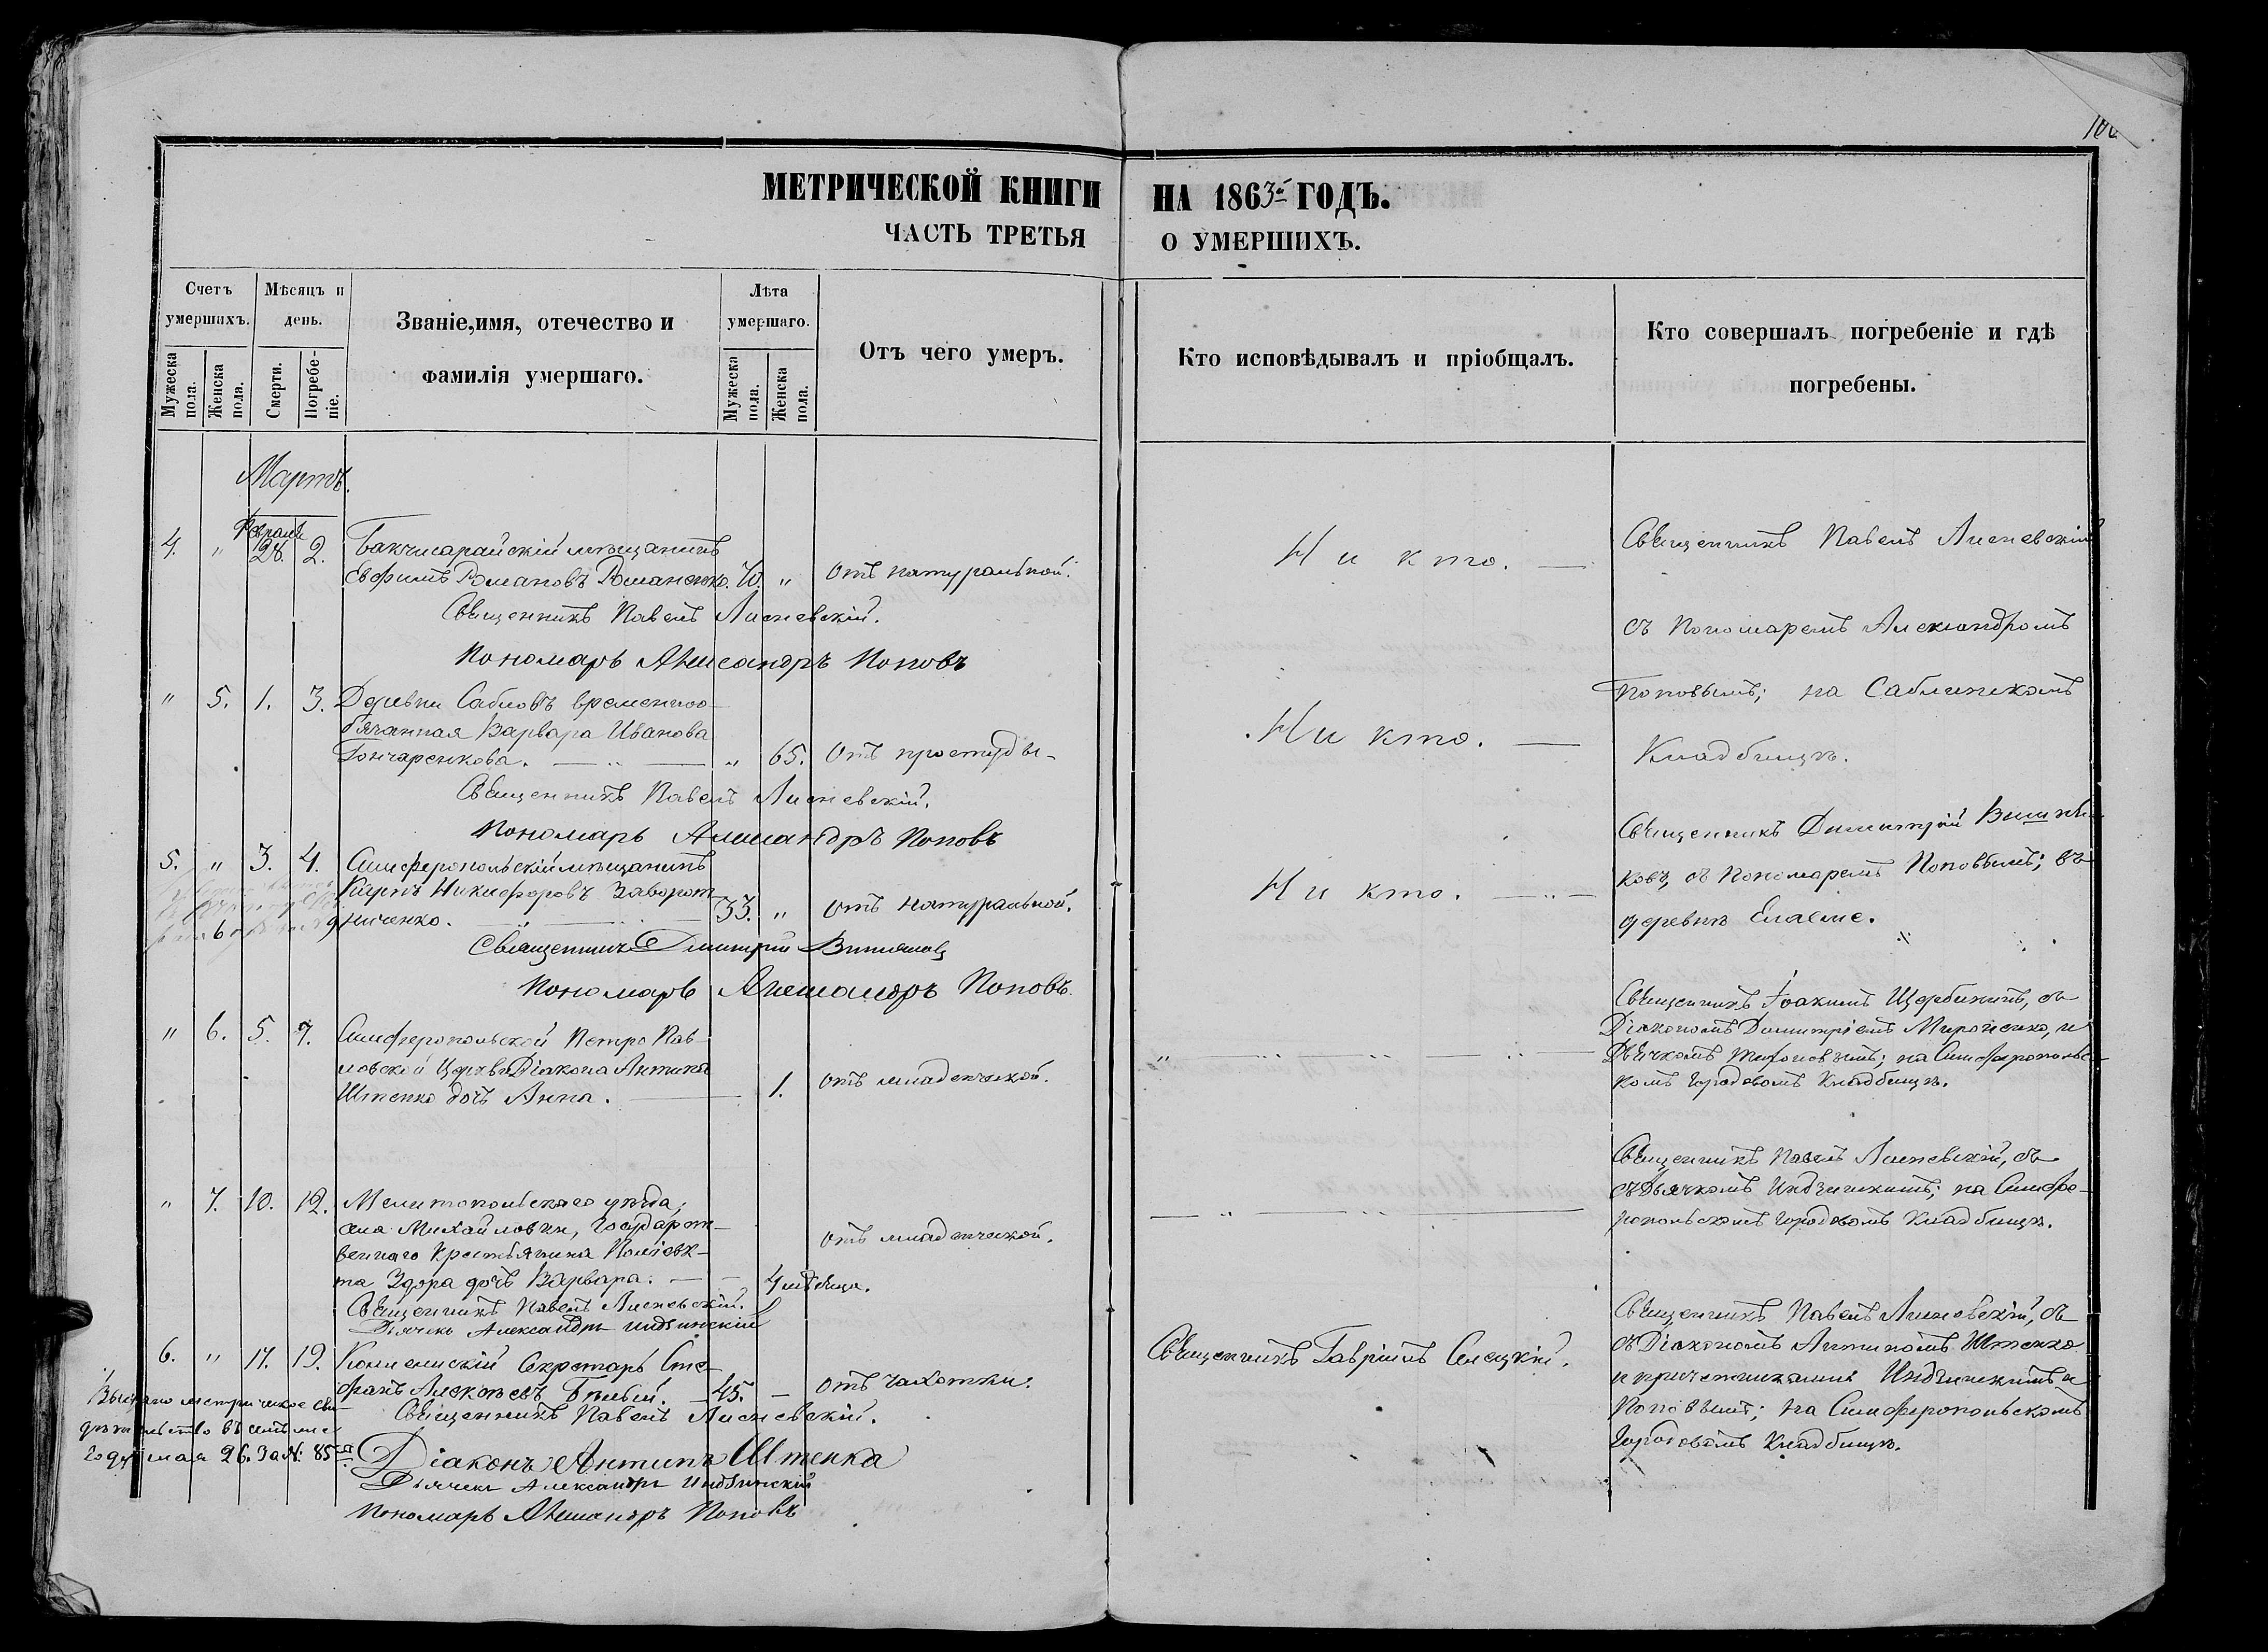 МЕТРИЧЕСКОЙ КНИГИ НА 1863й ГОДЪ.
ЧАСТЬ ТРЕТЬЯ О УМЕРШИХЪ.
Счетъ умершихъ.
Мужеска пола.
Женска пола.
Мѣсяцъ и день.
Смерти.
Погребеніе.
Званіе, имя, отечество и
фамилія умершаго.
Лѣта умершаго.
Мужеска пола.
Женска пола.
Отъ чего умеръ.
Кто исповѣдывалъ и пріобщалъ.
Кто совершалъ погребеніе и гдѣ
погребены.
Мартъ.
Февраля
4. " 28. 2. Бакчисарайскій мѣщанинъ
Евфимъ Романовъ Романенко. 70. " Отъ натуральной.
Никто.
Священникъ Павелъ Лисневскій
съ Пономаремъ Александромъ
Поповымъ; на Саблинскомъ
Кладбищѣ.
Священникъ Павелъ Лисневскій.
Пономарь Александръ Поповъ
" 5. 1. 3. Деревни Сабловъ временноо-
бязанная Варвара Иванова
Гончаренкова. " 65. Отъ простуды
Никто.
Священникъ Павелъ Лисневскій.
Пономарь Александръ Поповъ
5. " 3. 4. Симферопольскій мѣщанинъ
Карпъ Никифоровъ Заворот-
ниченко. 33. " Отъ натуральной.
Никто.
Священникъ Димитрій Вишня-
ковъ, съ Пономаремъ Поповымъ; въ
деревнѣ
Священникъ Димитрій Вишняковъ
Пономарь Александръ Поповъ.
" 6. 5. 7. Симферопольской Петро Пав-
ловской Церкви Діакона Антипа
Штепко дочь Анна. 1. Отъ младенческой.
Священникъ Іоакимъ Щербининъ, съ
Діакономъ Димитріемъ Мироненко, и
Дьячкомъ Тихоновымъ; на Симферопольс-
комъ Городовомъ Кладбищѣ.
" 7. 10. 12. Мелитопольскаго уѣзда,
села Михайловки, Государст-
веннаго Крестьянина Поліевк-
та Здора дочь Варвара. 4 мѣсяца. Отъ младенческой.
Священникъ Павелъ Лисневскій, съ
съ Дьячкомъ Индзинскимъ; на Симфе-
ропольскомъ Городовомъ Кладбищѣ.
Священникъ Павелъ Лисневскій.
Дьячекъ Александръ Индзинскій
6. " 17. 19. Секретарь Сте-
фанъ Алексѣевъ 45. — Отъ чахотки.
Священникъ Гавріилъ
Священникъ Павелъ Лисневскій, съ
съ Діакономъ Антипомъ Штепко
и причетниками Индзинскимъ и
Поповымъ; на Симферопольскомъ
Городовомъ Кладбищѣ.
Священникъ Павелъ Лисневскій.
Выдано метрическое сви-
дѣтельство въ семъ же
году мая 26. за № 85
Діаконъ Антипъ Штепка
Дьячекъ Александръ Индзинскій
Пономарь Александръ Поповъ